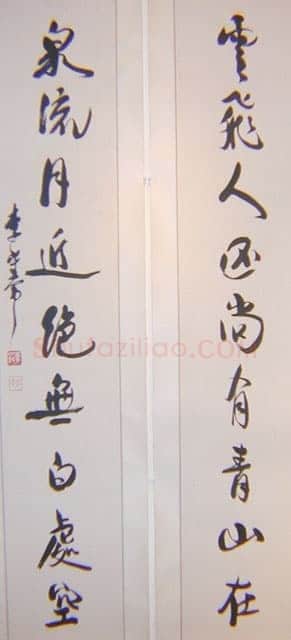 雲飛人尚有青山在
泉流月近絕無白處
李
Shufaziliao.com